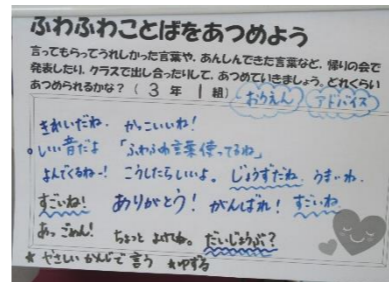 ふわふわことばをあつめよう
言ってもらってうれしかった言葉や、あんしんできた言葉など、帰りの会で
発表したり、クラスで出し合ったりして、あつめていきましょう。どれくらい
あつめられるかな？（ 3 年 1 組）
おうえん アドバイス
きれいだね。 かっこいいね！
いい音だよ 「ふわふわ言葉使ってるね」
よんでくるねー！ こうしたらいいよ。 じょうずだね。 うまいね。
すごいね！ ありがとう！ がんばれ！ すごいね。
あっごめん！ ちょっと よけてね。 だいじょうぶ？
★やさしいかんじで言う ★ゆずる